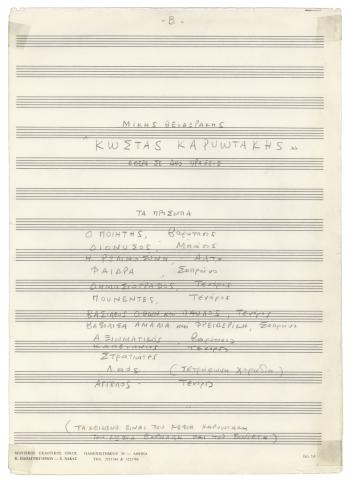 - B -
ΜΙΚΗΣ ΘΕΟΔΩΡΑΚΗΣ
"ΚΩΣΤΑΣ ΚΑΡΥΩΤΑΚΗΣ"
ΟΠΕΡΑ ΣΕ ΔΥΟ ΠΡΑΞΕΙΣ
ΤΑ ΠΡΟΣΩΠΑ
Ο ΠΟΙΗΤΗΣ, Βαρύτονος
ΔΙΟΝΥΣΟΣ, Μπάσος
Η ΡΩΜΙΟΣΥΝΗ, Άλτο
ΦΑΙΔΡΑ, Σοπράνο
ΔΗΜΟΣΙΟΓΡΑΦΟΣ, Τενόρος
ΠΟΥΝΕΝΤΕΣ, Τενόρος
ΒΑΣΙΛΕΥΣ ΟΘΩΝ και ΠΑΥΛΟΣ, Τενόρος
ΒΑΣΙΛΙΣΣΑ ΑΜΑΛΙΑ και ΦΡΕΙΔΕΡΙΚΗ, Σοπράνο
ΑΞΙΩΜΑΤΙΚΟΣ, Βαρύτονος
Τενόρος
Στρατιώτες
Λαός (Τετράφωνη Χορωδία)
ΑΓΓΕΛΟΣ - Τενόρος
(ΤΑ ΚΕΙΜΕΝΑ ΕΙΝΑΙ ΤΟΥ ΚΩΣΤΑ ΚΑΡΥΩΤΑΚΗ
ΚΑΙ ΤΟΥ ΣΥΝΘΕΤΗ)
ΜΟΥΣΙΚΟΣ ΕΚΔΟΤΙΚΟΣ ΟΙΚΟΣ ΠΑΝΕΠΙΣΤΗΜΙΟΥ 39 — ΑΘΗΝΑΙ
Κ. ΠΑΠΑΓΡΗΓΟΡΙΟΥ — Χ. ΝΑΚΑΣ ΤΗΛ.
No 14